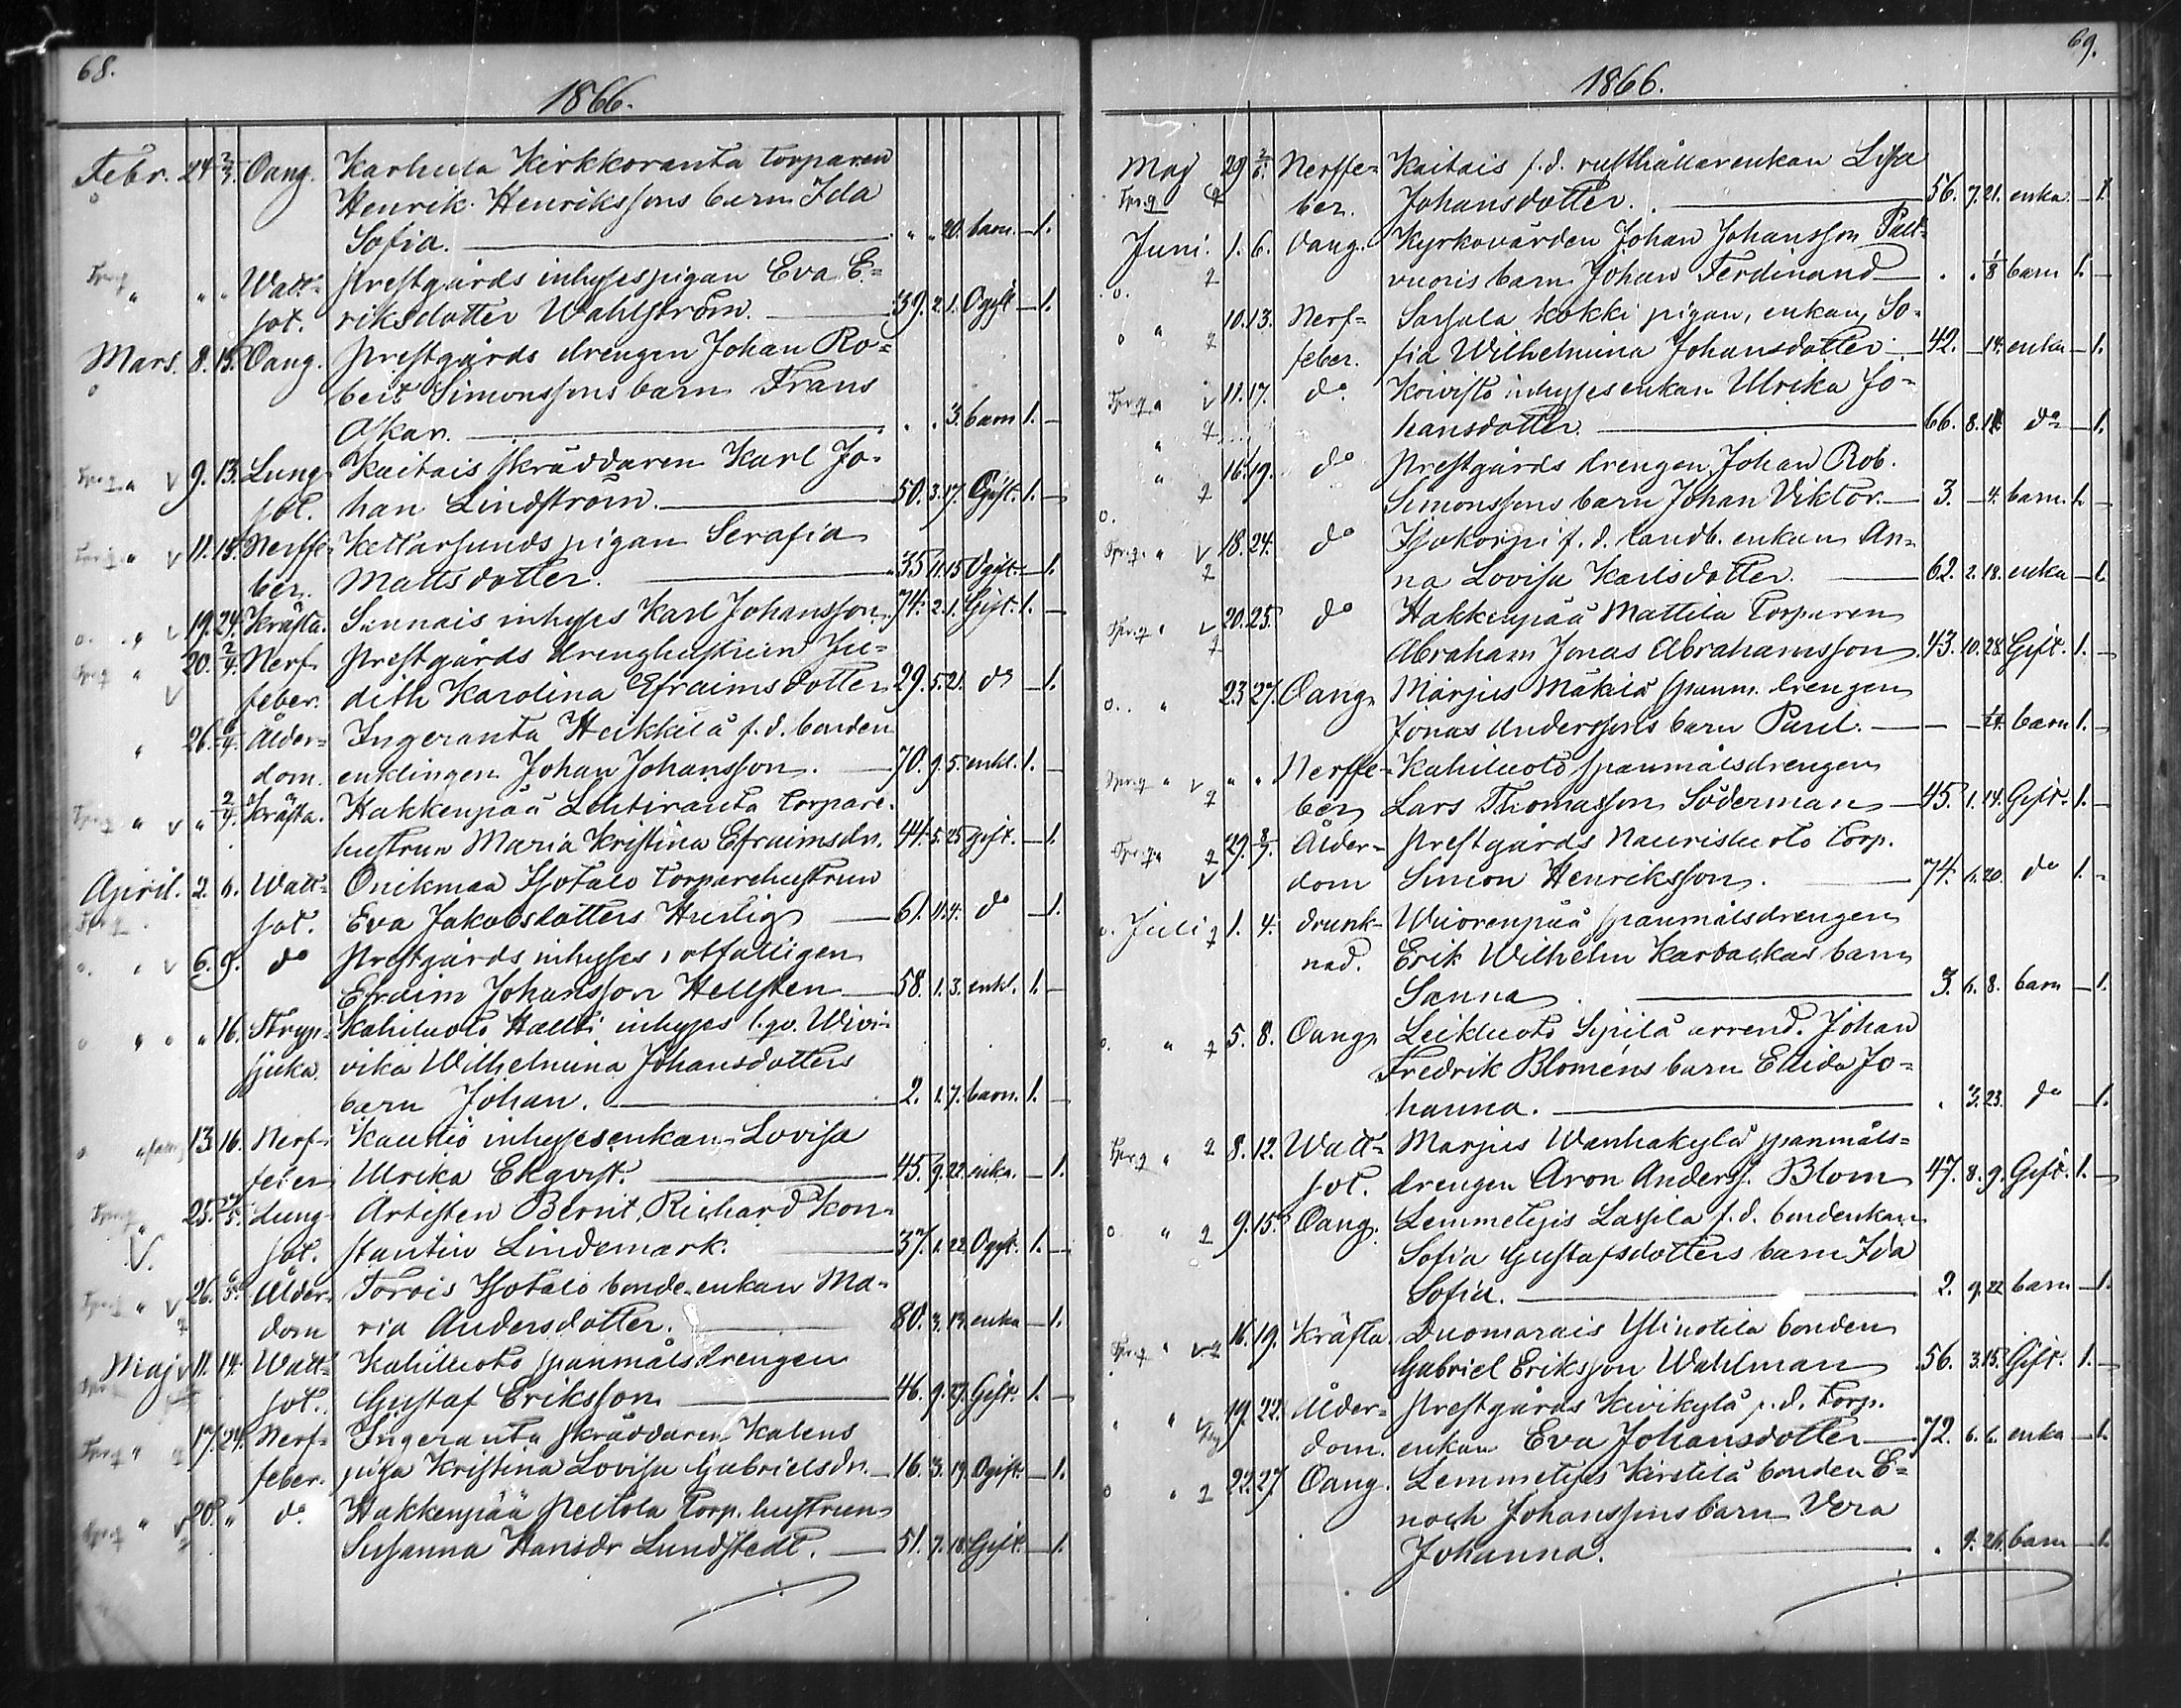 68.
1866.
Febr. 24 2/3. Oang. Karhula Kirkkoranta torparen
Henrik Henrikssons barn Ida
Sofia. " " 20. barn. — 1.
" " " Watt- Prestgårds inhysespigan Eva E-
sot. riksdotter Wahlström. 39. 2. 1. Ogift — 1.
Mars. 8. 15. Oang. Prestgårds drengen Johan Ro-
bert Simonssons barn Frans
Akar. " " 3. barn 1. —
" 9. 13. Lung- Kaitais skräddaren Karl Jo-
sot. han Lindström. 50. 3. 17. Ogift. 1. —
" 11. 18. Nerffe- Kettarsunds pigan Serafia
ber. Mattsdotter. 35 11. 15 Ogift. — 1.
" 19. 24. Kräfta. Sunnais inhyses Karl Johansson. 74. 2. 1. Gift. 1. —
" 20. 2/4. Nerf- Prestgårds drenghustrun Ju-
feber. dith Karolina Efraimsdotter 29. 5. 21. do — 1.
" 26. 6/4. Ålder- Ingeranta Heikkilä f. d. bonden
dom. enklingen Johan Johansson. 70. 9. 5. enkl. 1. —
" " 2/4. Kräfta. Hakkenpää Lehtiranta torpare-
hustrun Maria Kristina Efraimsdr. 44. 5. 25 gift. — 1.
April. 2. 6. Watt- Onikmaa Isotalo torparehustrun
sot. Eva Jakobsdotters Hurtig 61. 11. 4. do — 1.
" 6. 9. do Prestgårds inhyses rotfattigen
Efraim Johansson Hellsten 58. 1. 3. enkl. 1. —
" " 16. Stryp- Kahiluoto Haltti inhyses l. qv. Wivi-
sjuka. vika Wilhelmina Johansdotters
barn Johan. 2. 1. 7. barn. 1. —
" 13. 16. Nerf- Kautio inhysesenkan Lovisa
feber Ulrika Ekqvist. 45. 9. 22. enka. — 1.
" 25. Lung- Artisten Bernt Richard Kon-
sot. stantin Lindemark. 37. 1. 22. Ogift. 1. —
" 26. 6/5. Ålder- Torois Isotalo bonde-enkan Ma-
dom ria Andersdotter. 80. 3. 13. enka — 1.
Maj 11. 14. Watt- Kahiluoto spanmålsdrengen
sot. Gustaf Eriksson 46. 9. 27. Gift. 1. —
" 17. 24. Nerf- Ingeranta skräddaren Kalens
feber. piga Kristina Lovisa Gabrielsdr. 16. 3. 19. Ogift. — 1.
" 20. " do. Hakkenpää Peltola torp. hustrun
Susanna Hansdr Lundstedt. 51. 7. 18. Gift. — 1.
69.
1866.
Maj 29 2/6. Nerffe- Kaitais f. d. rusthållarenkan Lisa
ber. Johansdotter. 56. 7. 21. enka. — 1.
Juni. 1. 6. Oang. Kyrkovärden Johan Johansson Palt-
vuoris barn Johan Ferdinand . . 1/8 barn 1. —
" 10. 13. Nerf- Sarsala Kokki pigan, enkan, So-
feber. fia Wilhelmina Johansdotter 42. — 14. enka — 1.
" 11. 17. do Koivisto inhysesenkan Ulrika Jo-
hansdotter. 66. 8. do — 1.
" 16. 19. do Prestgårds drengen Johan Rob.
Simonssons barn Johan Viktor. 3. — 4. barn. 1. —
" 18. 24. do Isokorpi f. d. landb. enkan An-
na Lovisa Karlsdotter. 62. 2. 18. enka — 1.
" 20. 25. do Hakkenpää Mattila torparen
Abraham Jonas Abrahamsson. 43. 10. 28. Gift. 1. —
" 23 27. Oang. Marjus Mäkilä spanm. drengen
Jonas Anderssons barn Paul. — — barn 1. —
" " " Nerffe- Kahiluoto spanmålsdrengen
ber Lars Thomasson Söderman 45. 1. 14. Gift. 1. —
" 29. 8/7. Ålder- Prestgårds Naurisluoto torp.
dom Simon Henriksson. 74. 1. 20. do 1. —
Juli 1. 4. drunk- Wuorenpää spanmålsdrengen
nad. Erik Wilhelm Karbackas barn
Sanna 3. 6. 8. barn — 1.
" 5. 8. Oang. Leikluoto Sipilä arrend. Johan
Fredrik Bloméns barn Ellida Jo-
hanna. . 3. 23. do — 1.
" 8. 12. Watt- Marjus Wanhakylä spanmåls-
sot. drengen Aron Anderss. Blom 47. 8. 9. Gift. 1. —
" 9. 15. Oang. Lemmetyis Lassila f. d. bondenkan
Sofia Gustafsdotters barn Ida
Sofia. 2. 9. 22 barn — 1.
" 16. 19. Kräfta. Duomarais Ylinotila bonden
Gabriel Eriksson Wahlman 56. 3. 15. Gift. 1. —
" 19. 22. Ålder- Prestgårds Kivikylä f. d. torp.
dom. enkan Eva Johansdotter 72. 6. 6. enka — 1.
" 22. 27. Oang. Lemmetyis Kirstilä bonden E-
noch Johanssons barn Vera
Johanna. . 9. 26. barn — 1.